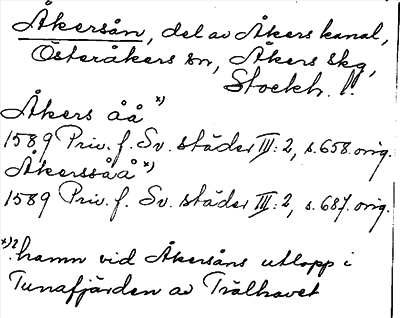 Åkersån, del av Åkers kanal,
Österåkers sn, Åkers skg,
Stockh. l.
Åkers åå x)
1589 Priv. f. Sv. städer III: 2, s. 658. orig.
Åkerssåå x)
1589 Priv. f. Sv. städer III: 2, s. 687. orig.
x)? hamn vid Åkersåns utlopp i
Tunafjärden av Trälhavet